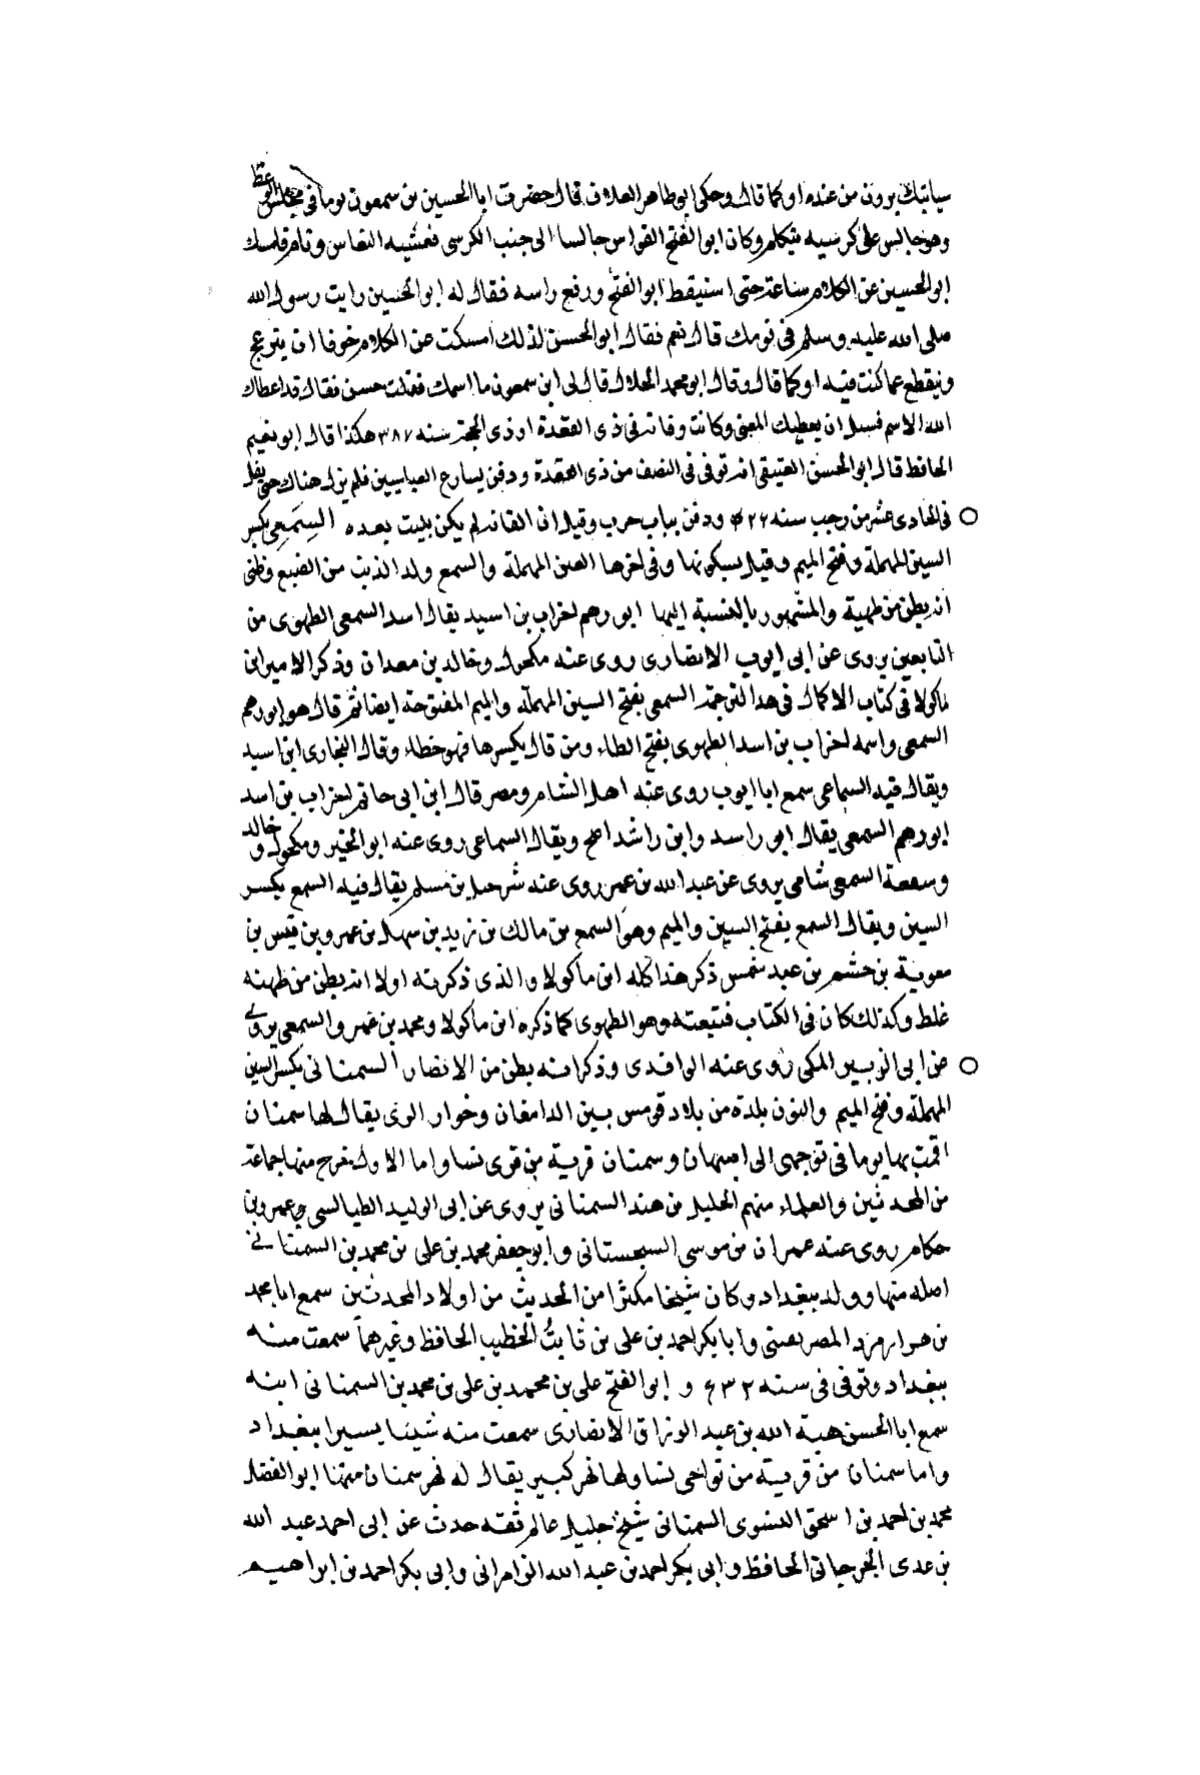 سياتيك برون من عنده او كما قال وحكى ابو طاهر العلاف قال حضرت ابا الحسين بن سمعون يوما في مجلس الوعظ
وهو جالس على كرسيه يتكلم وكان ابو الفتح القواس جالسا الى جنب الكرسي فغشيه النعاس ونام فامسك
ابو الحسين عن الكلام ساعة حتى استيقظ ابو الفتح ورفع راسه فقال له ابو الحسين رايت رسول الله
صلى الله عليه وسلم في نومك قال نعم فقال ابو الحسين لذلك امسكت عن الكلام خوفا ان ينزعج
وينقطع عما كنت فيه او كما قال وقال ابو محمد الخلال قال لى ابن سمعون ما اسمك فقلت حسن فقال قد اعطاك
الله الاسم فسل ان يعطيك المعنى وكانت وفاته في ذى القعدة او ذى الحجة سنه ٣٨٧ هكذا قال ابو نعيم
الحافظ قال ابو الحسن العتيقى انه توفى في النصف من ذى القعدة ودفن بشارع العباسيين فلم يزل هناك حتى نقل
في الحادى عشر من رجب سنه ٤٢٦ ودفن بباب حرب وقيل ان الفانه لم يكن بليت بعده السِمَعى بكسر
السين المهملة وفتح الميم وقيل بسكونها وفى اخرها العين المهملة والسمع ولد الذئب من الضبع وظنى
انه بطن من طهية والمشهور بالنسبة اليها ابو رهم احزاب بن اسيد يقال اسد السمعى الطهوى من
التابعين يروى عن ابى ايوب الانصارى روى عنه مكحول وخالد بن معدان وذكر الامير ابن
ماكولا في كتاب الاكمال في هذا الترجمة السمعى بفتح السين المهملة والميم المفتوحة ايضا ثم قال هو ابو رهم
السمعى واسمه احزاب بن اسد الطهوى بفتح الطاء ومن قال بكسرها فهو خطاء وقال البخارى ابن اسيد
ويقال فيه السماعى سمع ابا ايوب روى عنه اهل الشام ومصر قال ابن ابى حاتم احزاب بن اسد
ابو رهم السمعى يقال ابو راسد وابن راشد اصح ويقال السماعى روى عنه ابو الخير ومكحول وخالد
وسمعة السمعى شامى يروى عن عبد الله بن عمر روى عنه شرحبيل بن مسلم يقال فيه السمع بكسر
السين ويقال السمع بفتح السين والميم وهو السمع بن مالك بن زيد بن سهل بن عمرو بن قيس بن
معوية بن جشم بن عبد شمس ذكر هذا كله ابن ماكولا والذى ذكرته اولا انه بطن من طهية
غلط وكذلك كان في الكتاب فتبعته وهو الطهوى كما ذكره ابن ماكولا ومحمد بن عمرو السمعى يروى
عن ابى الزبير المكى روى عنه الواقدى وذكر انه بطن من الانصار السمنانى بكسر السين
المهملة وفتح الميم والنون بلدة من بلاد قومس بين الدامغان وخوار الرى يقال لها سمنان
اقمت بها يوما في توجهى الى اصبهان وسمنان قرية من قرى نسا واما الاول فخرج منها جماعة
من المحدثين والعلماء منهم الخليل بن هند السمنانى يروى عن ابى الوليد الطيالسى وعمرو بن
حكام روى عنه عمران بن موسى السجستانى وابو جعفر محمد بن على بن محمد بن السمنانى
اصله منها وولد ببغداد وكان شيخا مكثرا من الحديث من اولاد المحدثين سمع ابا محمد
بن هزارمرد الصريفينى وابا بكر احمد بن على بن ثابت الخطيب الحافظ وغيرهما سمعت منه
ببغداد وتوفى في سنه ٥٣٢ و ابو الفتح على بن محمد بن على بن محمد بن السمنانى ابنه
سمع ابا الحسن هبة الله بن عبد الرزاق الانصارى سمعت منه شيئا يسيرا ببغداد
واما سمنان من قرية من نواحى نسا ولها نهر كبير يقال له نهر سمنان منها ابو الفضل
محمد بن احمد بن اسحق النسوى السمنانى شيخ جليل عالم ثقه حدث عن ابى احمد عبد الله
بن عدى الجرجانى الحافظ وابى بكر احمد بن عبد الله الزامرانى وابى بكر احمد بن ابراهيم